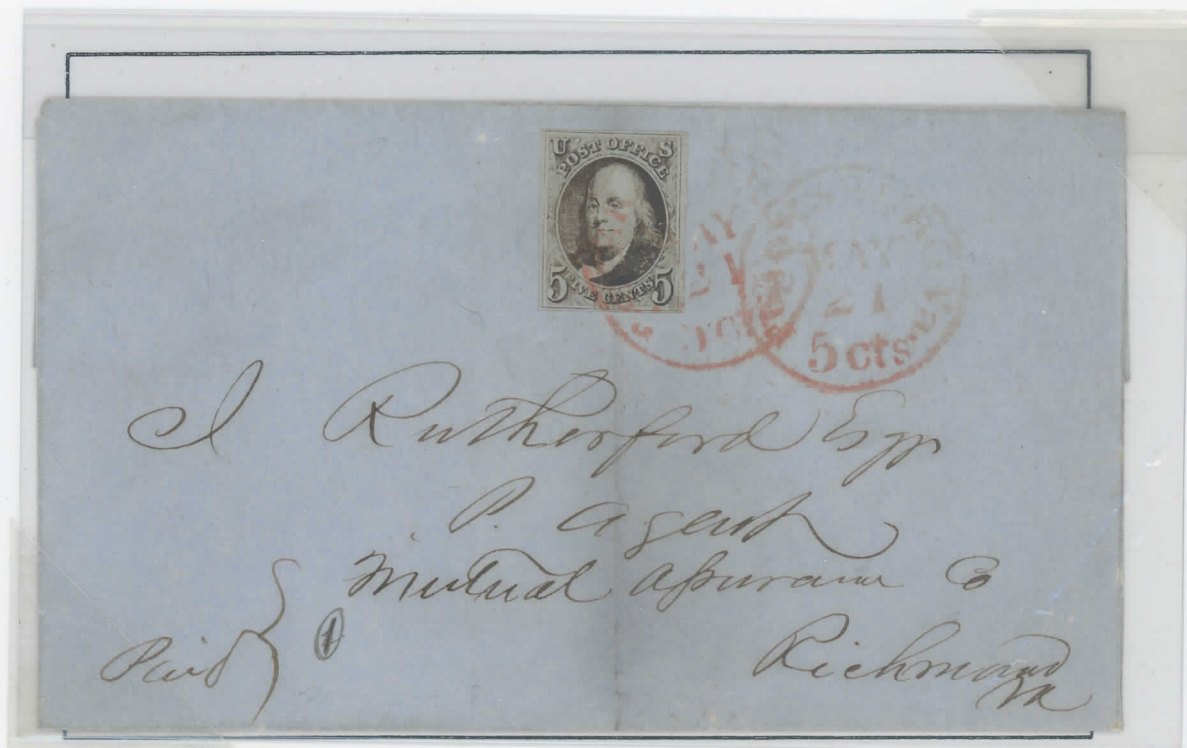 U S
POST OFFICE
5 FIVE CENTS 5
MAY
21
5 cts
MAY
21
5 cts
I Rutherford Esqr
P. Agent
Mutual Assurance Co
Paid
1
Richmond
Va